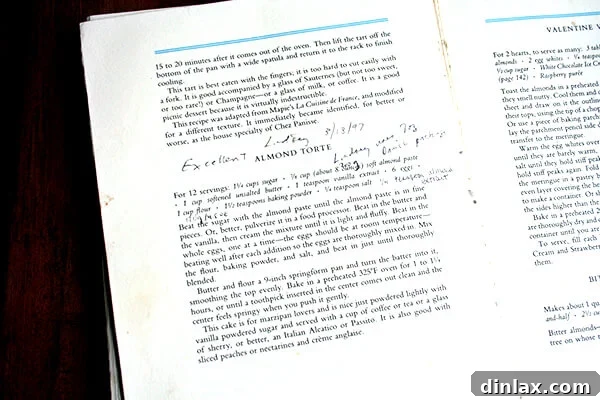 15 to 20 minutes after it comes out of the oven. Then lift the tart off the
bottom of the pan with a wide spatula and return it to the rack to finish
cooling.
This tart is best eaten with the fingers; it is too hard to cut easily with
a fork. It is good accompanied by a glass of Sauternes (but not too sweet,
or too rare!) or Champagne—or a glass of milk, or coffee. It is a good
picnic dessert because it is virtually indestructible.
This recipe was adapted from Mapie's La Cuisine de France, and modified
for a different texture. It immediately became identified, for better or
worse, as the house specialty of Chez Panisse.
Lindsey 8/13/97
Excellent
ALMOND TORTE
For 12 servings: 1¼ cups sugar · ⅞ cup (about soft almond paste
· 1 cup softened unsalted butter · 1 teaspoon vanilla extract · 6 eggs ·
1 cup flour · 1½ teaspoons baking powder · ¼ teaspoon salt
Beat the sugar with the almond paste until the almond paste is in fine
pieces. Or, better, pulverize it in a food processor. Beat in the butter and
the vanilla, then cream the mixture until it is light and fluffy. Beat in the
whole eggs, one at a time—the eggs should be at room temperature—
beating well after each addition so the eggs are thoroughly mixed in. Mix
the flour, baking powder, and salt, and beat in just until thoroughly
blended.
Butter and flour a 9-inch springform pan and turn the batter into it,
smoothing the top evenly. Bake in a preheated 325°F oven for 1 to 1¼
hours, or until a toothpick inserted in the center comes out clean and the
center feels springy when you push it gently.
This cake is for marzipan lovers and is nice just powdered lightly with
vanilla powdered sugar and served with a cup of coffee or tea or a glass
of sherry, or better, an Italian Aleatico or Passito. It is also good with
sliced peaches or nectarines and crème anglaise.
VALENTINE
For 2 hearts, to serve as many: 3 tabl
almonds · 2 egg whites · ⅛ teaspoon
½ cup sugar · White Chocolate Ice Cr
(page 142) · Raspberry purée
Toast the almonds in a preheated
they smell nutty. Cool them and c
sheet and draw on it the outline
their tops, using the tip of a chop
Or use a piece of baking parchm
lay the parchment pencil side d
transfer to the meringue.
Warm the egg whites over
until they are barely warm.
salt until they hold stiff peak
hold stiff peaks again. Fold
the meringue in a pastry b
even layer covering the he
to make a container. Or s
the sides higher than the
Bake in a preheated 2
are thoroughly dry and
container until you are
To serve, fill each
Cream and Strawberr
them.
BIT
Makes about 1 qu
and-half · 2½ cu
Bitter almonds—
tree on whose
dinlax.com